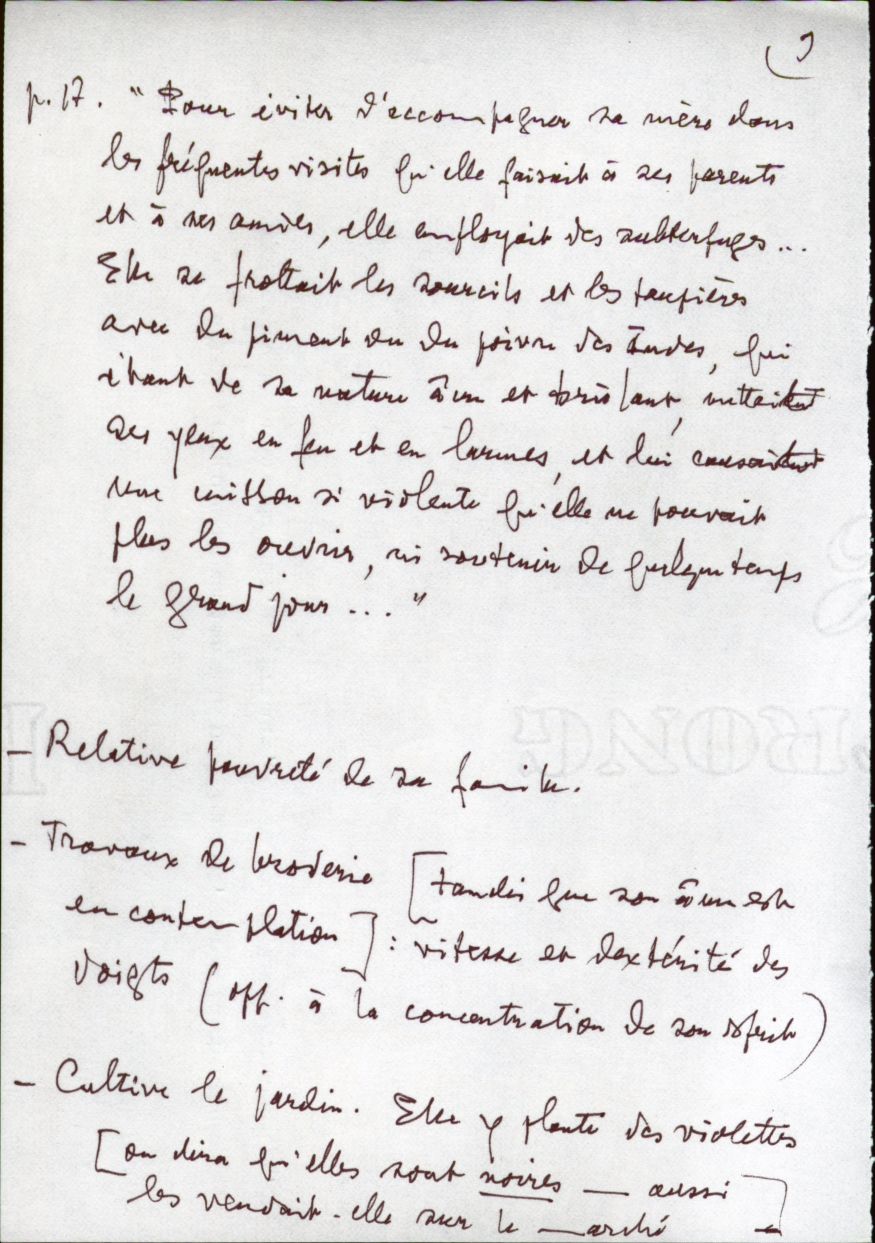 9
p. 17. " Pour éviter d'accompagner sa mère dans
les fréquentes visites qu'elle faisait à ses parents
et à ses amies, elle employait des subterfuges...
Elle se frottait les sourcils et les paupières
avec du piment ou du poivre des Indes, qui
étant de sa nature âcre et brûlant, mettait
ses yeux en feu et en larmes, et lui causait
une cuisson si violente qu'elle ne pouvait
plus les ouvrir, ni soutenir de quelque temps
le grand jour ... "
– Relative pauvreté de sa famille.
– Travaux de broderie [tandis que son âme est
en contemplation] : vitesse et dextérité des
doigts (opp. à la concentration de son esprit)
– Cultive le jardin. Elle y plante des violettes
[on dira qu'elles sont noires — aussi
les vendait-elle sur le marché]